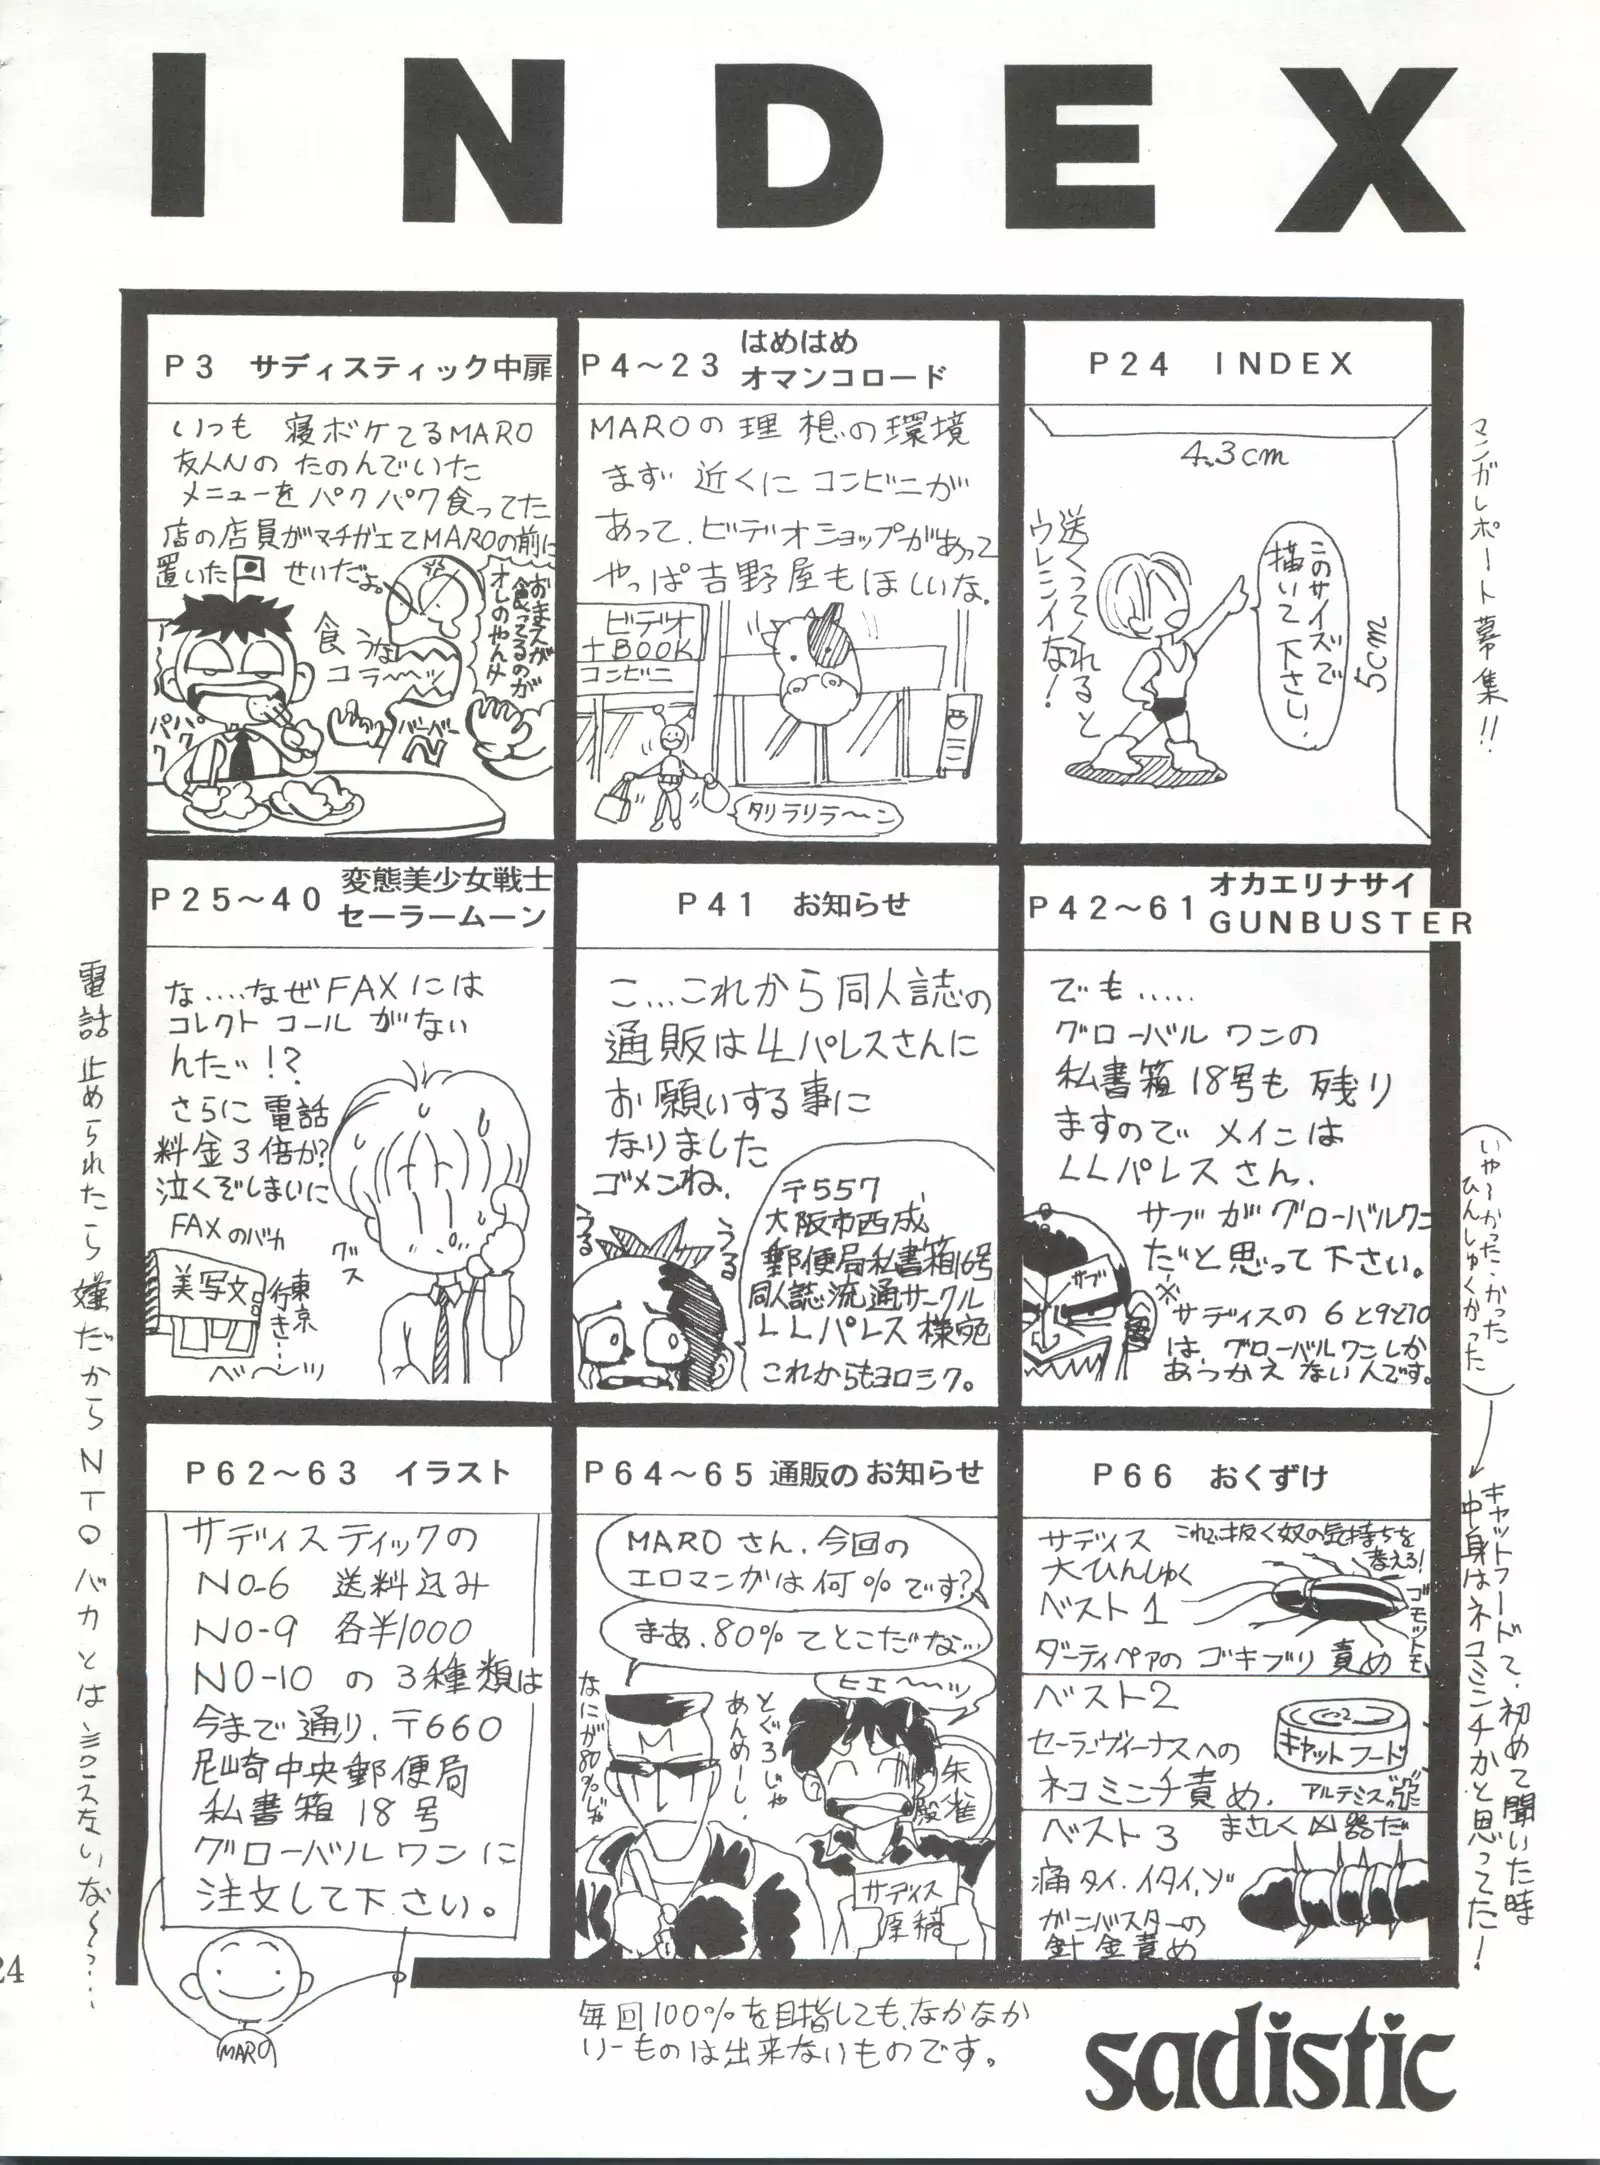 INDEX
P3 サディスティック中扉
いつも 寝ボケてるMARO
友人Nの たのんでいた
メニューを パクパク食ってた
店の店員がマチガエてMAROの前に
置いた せいだよ。
おまえが
食ってるのが
オレのやんけ
食うな
コラ〜〜ッ
パクパク
バーバー
N
P4〜23 はめはめ
オマンコロード
MAROの 理想の環境
まず 近くに コンビニが
あって、ビデオショップがあって
やっぱ吉野屋もほしいな。
ビデオ
+BOOK
コンビニ
タリラリラ〜〜ン
P24 INDEX
4.3cm
5cm
このサイズで
描いて下さい。
送ってくれると
ウレシイな!
マンガレポート募集!!
P25〜40 変態美少女戦士
セーラームーン
な....なぜFAXには
コレクト コール がない
んだ!?
さらに 電話
料金3倍か?
泣くぞしまいに
FAXのバカ
グス
美写文
東京
行き…
ベ〜〜ッ
電話止められたら嫌だからNTTのバカとは言わないな〜〜っ…
P41 お知らせ
こ...これから同人誌の
通販はLLパレスさんに
お願いする事に
なりました
ゴメンね.
うる
うる
〒557
大阪市西成
郵便局私書箱16号
同人誌流通サークル
LLパレス様宛
これからもヨロシク。
P42〜61 オカエリナサイ
GUNBUSTER
でも.....
グローバル ワンの
私書箱 18号も 残り
ますので メインは
LLパレスさん.
サブがグローバルワン
だと思って下さい。
サブ
※
サディスの 6と9と10
は、グローバルワンしか
あつかえ ないんです。
P62〜63 イラスト
サディスティックの
NO-6 送料込み
NO-9 各¥1000
NO-10 の 3種類は
今まで通り.〒660
尼崎中央郵便局
私書箱 18号
グローバルワンに
注文して下さい。
MARO
P64〜65 通販のお知らせ
MAROさん.今回の
エロマンガは何%です?
まあ.80%てとこだな…
ヒエ〜〜ッ
なにが80%じゃ
とぐろじゃ
あんめーし.
M
朱雀
サディス
原稿
毎回100%を目指しても、なかなか
いーものは出来ないものです。
P66 おくずけ
サディス
大ひんしゅく
ベスト1
これで抜く奴の気持ちを
考えろ!
ダーティペアの ゴキブリ 責め
ベスト2
セーラーヴィーナスへの
ネコミンチ責め.
キャットフード
ベスト3
まさしく凶器だ
痛タイ.イタイ.ゾ
ガンバスターの
針金責め
(いや〜かった.かった
ひんしゅくかった)
キャットフードて、初めて聞いた時
中身はネコミンチかと思ってた!
24
sadistic